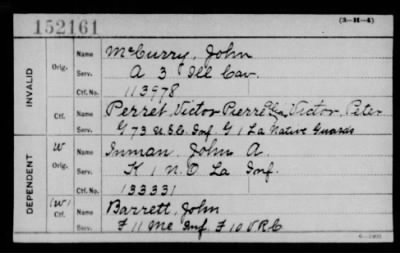 152161
(3-H-4)
INVALID
Orig.
Name McCurry, John
Serv. A 3 Ill Cav.
Ctf. No. 113978
Ctf.
Name Perret, Victor Pierre Victor, Peter
Serv. G 73 U.S.C. Inf G 1 La Native Guards
DEPENDENT
W
Orig.
Name Inman, John A.
Serv. K 1 N.O La Inf.
Ctf. No. 133331
(W)
Ctf.
Name Barrett, John
Serv. F 11 Me Inf. F 10 V R C